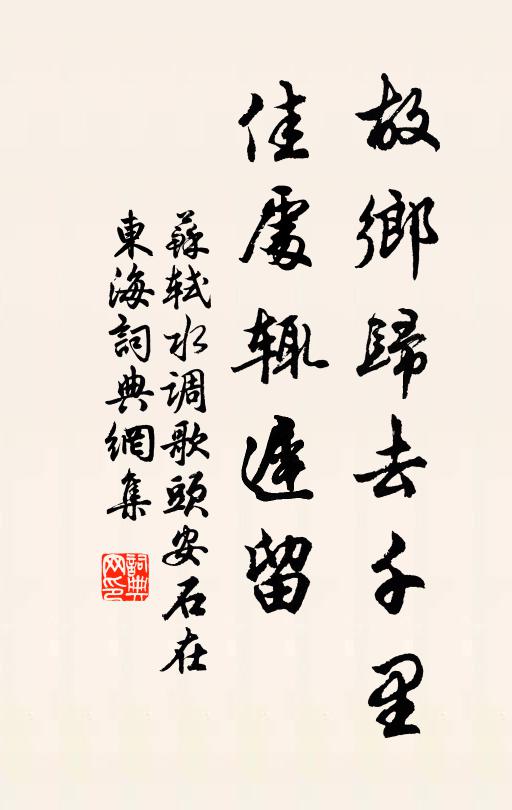 故鄉歸去千里
佳處辄遲留
蘇轼水调歌頭安石在
東海詞典網集
詞典
网印